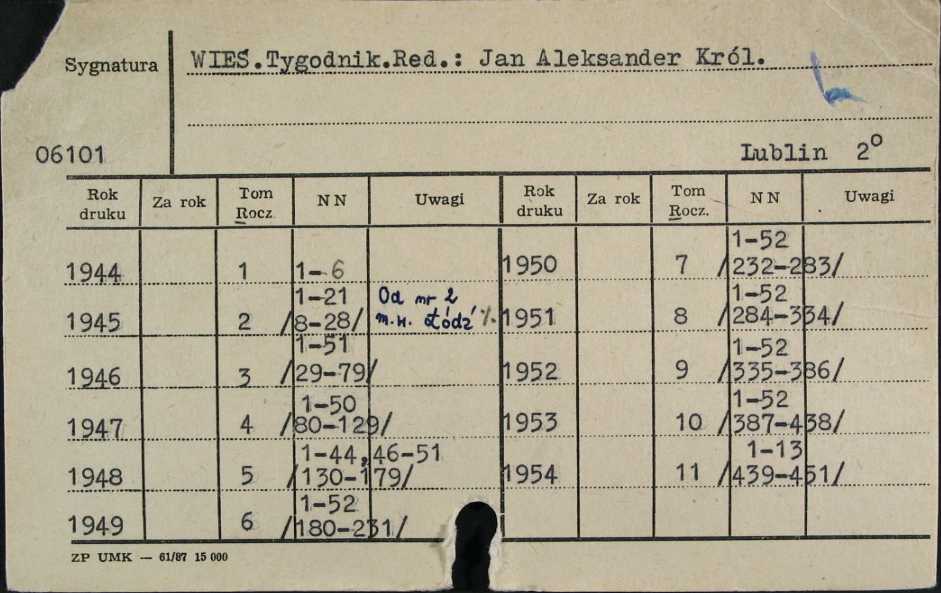 Sygnatura WIEŚ.Tygodnik.Red.: Jan Aleksander Król.
06101 Lublin 2°
Rok druku Za rok Tom Rocz. NN Uwagi Rok druku Za rok Tom Rocz. NN Uwagi
1944 1 1-6
1945 2 1-21 /8-28/ Od nr 2 m.w. Łódź
1946 3 1-51 /29-79/
1947 4 1-50 /80-129/
1948 5 1-44,46-51 /130-179/
1949 6 1-52 /180-231/
1950 7 1-52 /232-283/
1951 8 1-52 /284-334/
1952 9 1-52 /335-386/
1953 10 1-52 /387-438/
1954 11 1-13 /439-451/
ZP UMK — 61/87 15 000